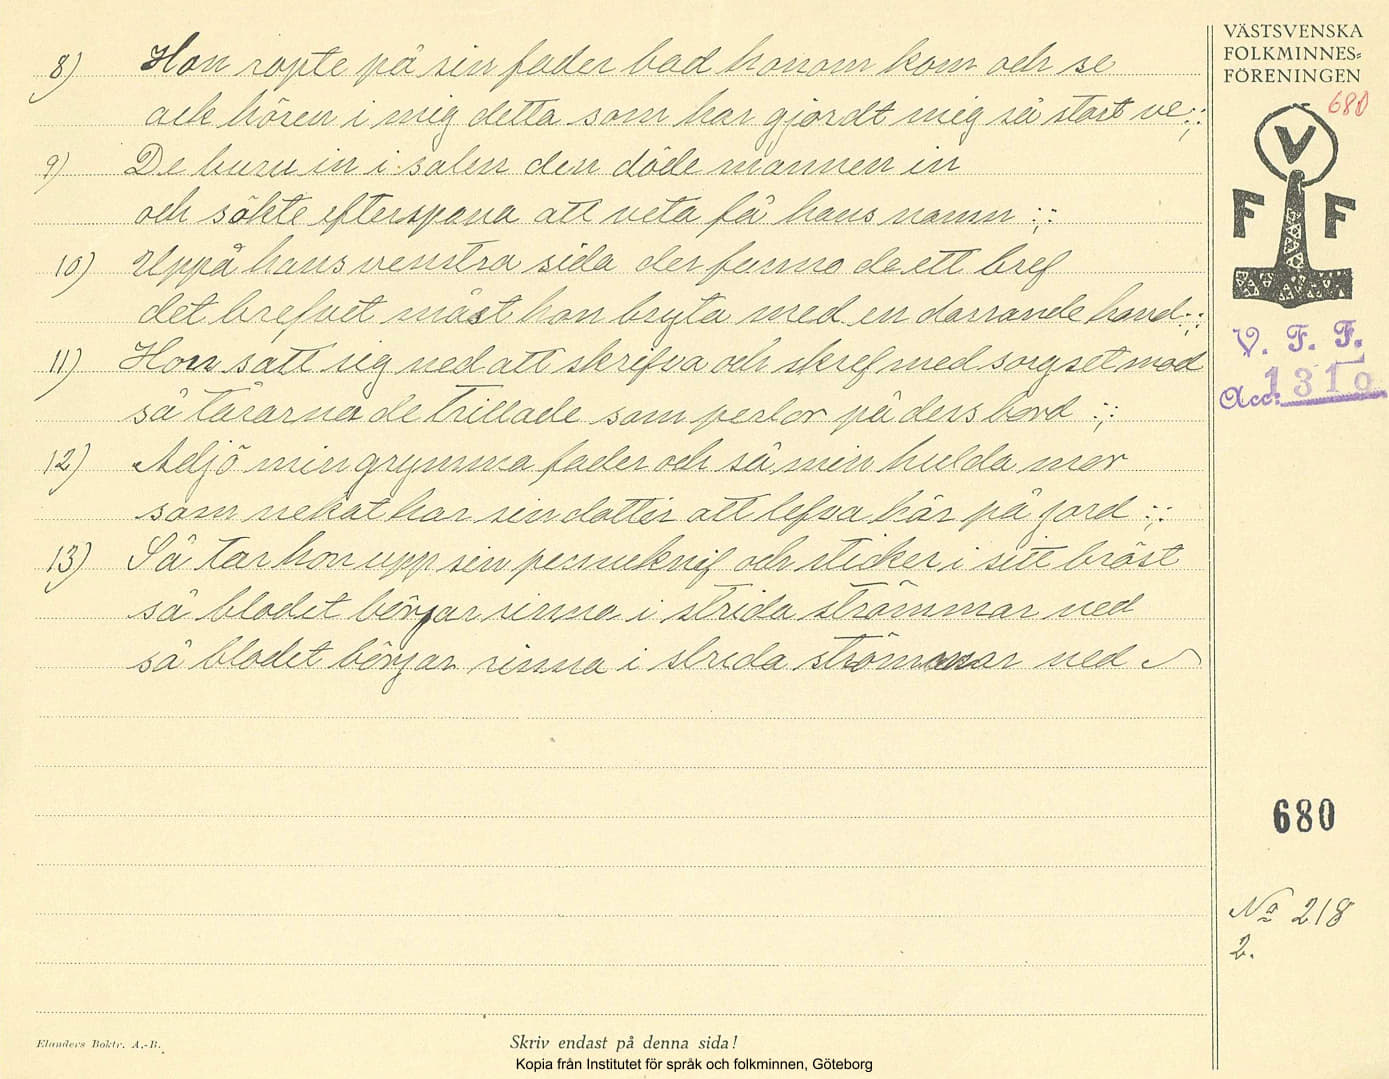 8) Hon ropte på sin fader bad honom kom och se
ack hören i mig detta som har gjordt mig så stort ve :;:
9) De buru in i salen den döde mannen in
och sökte efterspana att veta få hans namn :;:
10) Uppå hans venstra sida der funno de ett bref
det brefvet måst hon bryta med en darrande hand :;:
11) Hon satt sig ned att skrifva och skref med sorgset mod
så tårarna de trillade som perlor på dess bord :;:
12) Adjö min grymma fader och så min hulda mor
som nekat har sin dotter att lefva här på jord :;:
13) Så tar hon upp sin penneknif och sticker i sitt bröst
så blodet börjar rinna i strida strömmar ned
så blodet börjar rinna i strida strömmar ned
VÄSTSVENSKA
FOLKMINNES=
FÖRENINGEN
680
V
F F
V. F. F.
Acc. 1310
680
No 218
2.
Elanders Boktr. A.-B.
Skriv endast på denna sida!
Kopia från Institutet för språk och folkminnen, Göteborg